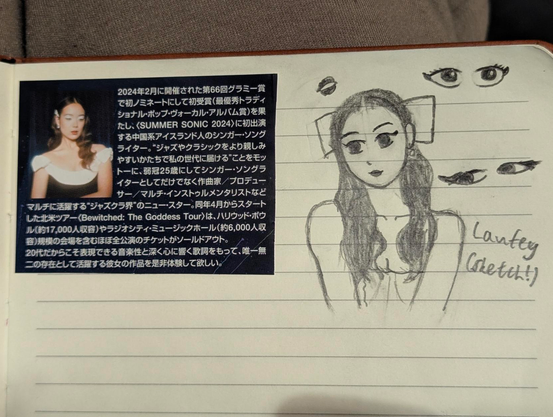 2024年2月に開催された第66回グラミー賞
で初ノミネートにして初受賞(最優秀トラディ
ショナル・ポップ・ヴォーカル・アルバム賞)を果
たし、〈SUMMER SONIC 2024〉に初出演
する中国系アイスランド人のシンガー・ソング
ライター。“ジャズやクラシックをより親しみ
やすいかたちで私の世代に届ける”ことをモッ
トーに、弱冠25歳にしてシンガー・ソングラ
イターとしてだけでなく作曲家/プロデュー
サー/マルチ・インストゥルメンタリストなど
マルチに活躍する“ジャズクラ界”のニュー・スター。同年4月からスタート
した北米ツアー〈Bewitched: The Goddess Tour〉は、ハリウッド・ボウ
ル(約17,000人収容)やラジオシティ・ミュージックホール(約6,000人収
容)規模の会場を含むほぼ全公演のチケットがソールドアウト。
20代だからこそ表現できる音楽性と深く心に響く歌詞をもって、唯一無
二の存在として活躍する彼女の作品を是非体験して欲しい。
Laufey
(sketch!)